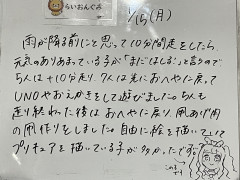 らいおんぐみ
1/15(月)
雨が降る前にと思って10分間走をしたら、
元気のありあまっている子が「まだはしる」と言うので
5人は+10分走り、7人は先におへやに戻って
UNOやおえかきをして遊びました。5人も
走り終わった後はおへやに戻り、凧あげ用
の凧作りをしました。自由に絵を描いていて
プリキュアを描いている子が多かったです